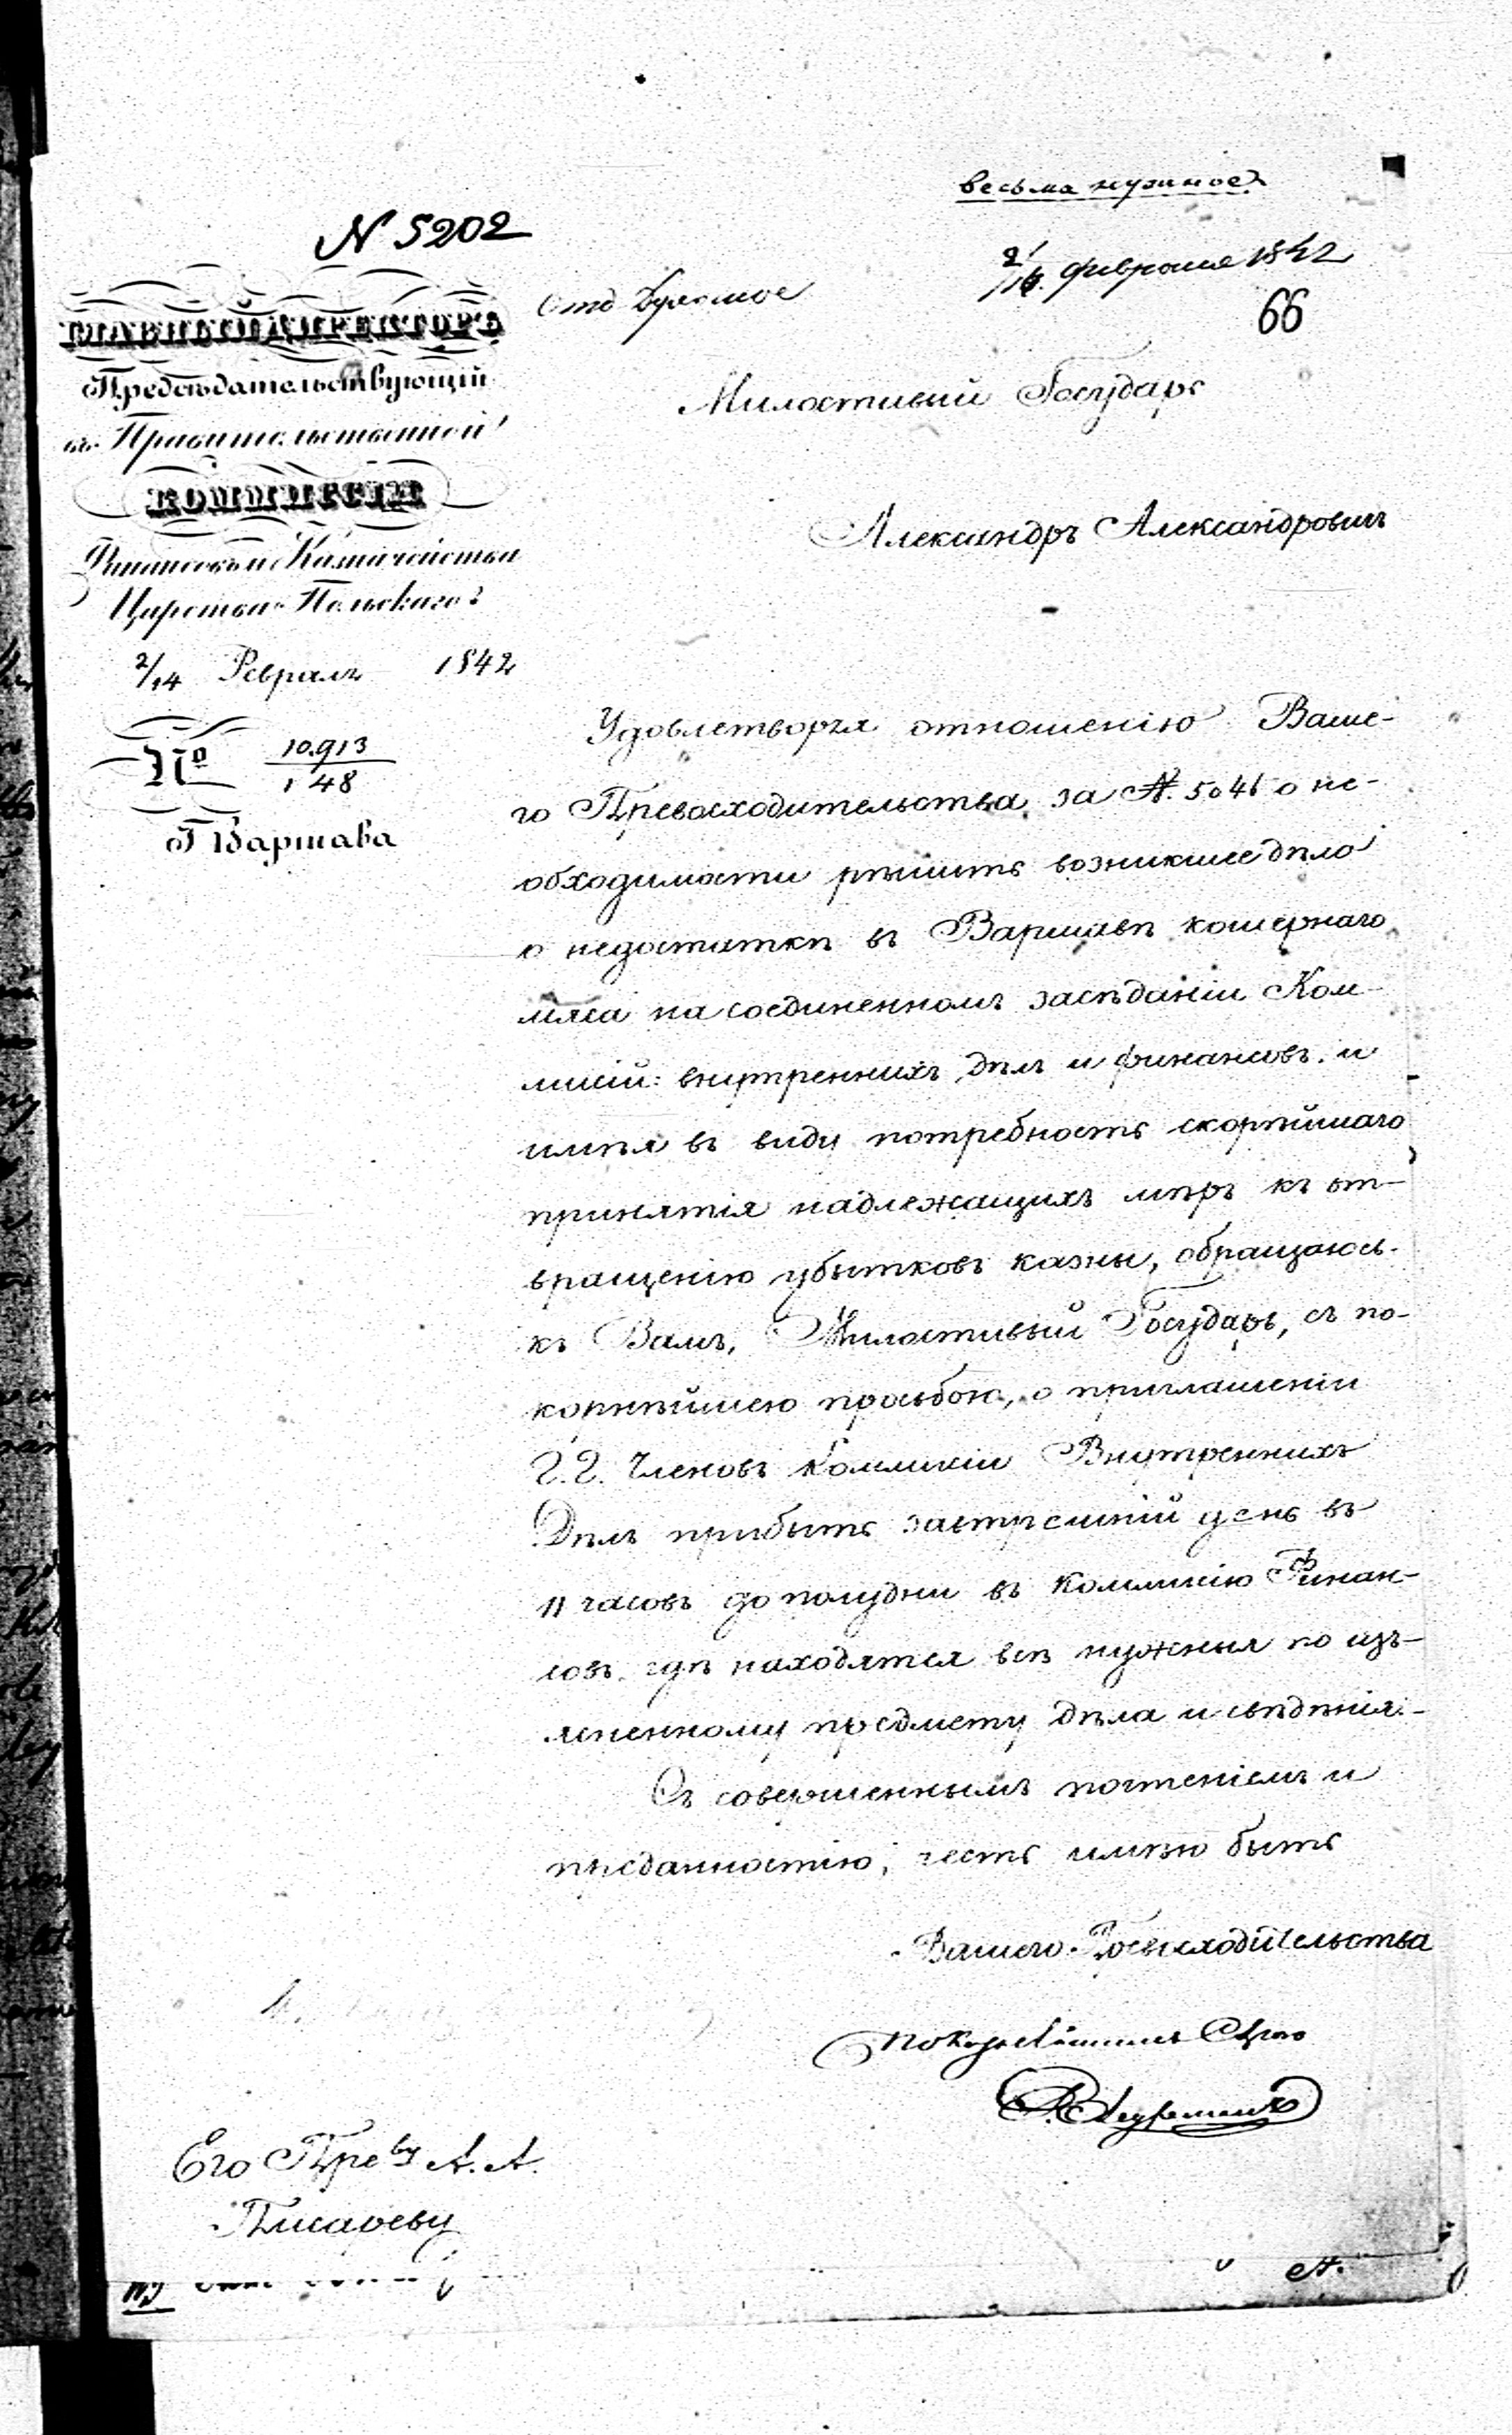 весьма нужное
N 5202
2/14 февраля 1842
66
Отд Духовное
ГЛАВНЫЙ ДИРЕКТОРЪ
Предсѣдательствующій
въ Правительственной
КОММИССІИ
Финансовъ и Казначейства
Царства Польскаго
2/14 Февраля 1842
№ 10.913
148
Г Варшава
Милостивый Государь
Александръ Александровичъ
Удовлетворяя отношенію Ваше-
го Превосходительства за №. 5046 о не-
обходимости рѣшить возникшее дѣло
о недостаткѣ въ Варшавѣ кошернаго
мяса на соединенномъ засѣданіи Ком-
мисій: внутреннихъ дѣлъ и финансовъ. и
имѣя въ виду потребность скорѣйшаго
принятія надлежащихъ мѣръ къ от-
вращенію убытковъ казны, обращаюсь
къ Вамъ, Милостивый Государь, съ по-
корнѣйшею просьбою, о приглашеніи
Г.Г. Членовъ Коммисіи Внутреннихъ
Дѣлъ прибыть завтрешній день въ
11 часовъ до полудни въ Коммисію Финан-
совъ. гдѣ находятся всѣ нужныя по изъ-
ясненному предмету дѣла и свѣдѣнія.-
Съ совершеннымъ почтеніемъ и
преданностію, честь имѣю быть
Вашего Превосходительства
покорнѣйшимъ Слугою
Его Прев-ву А. А.
Писареву